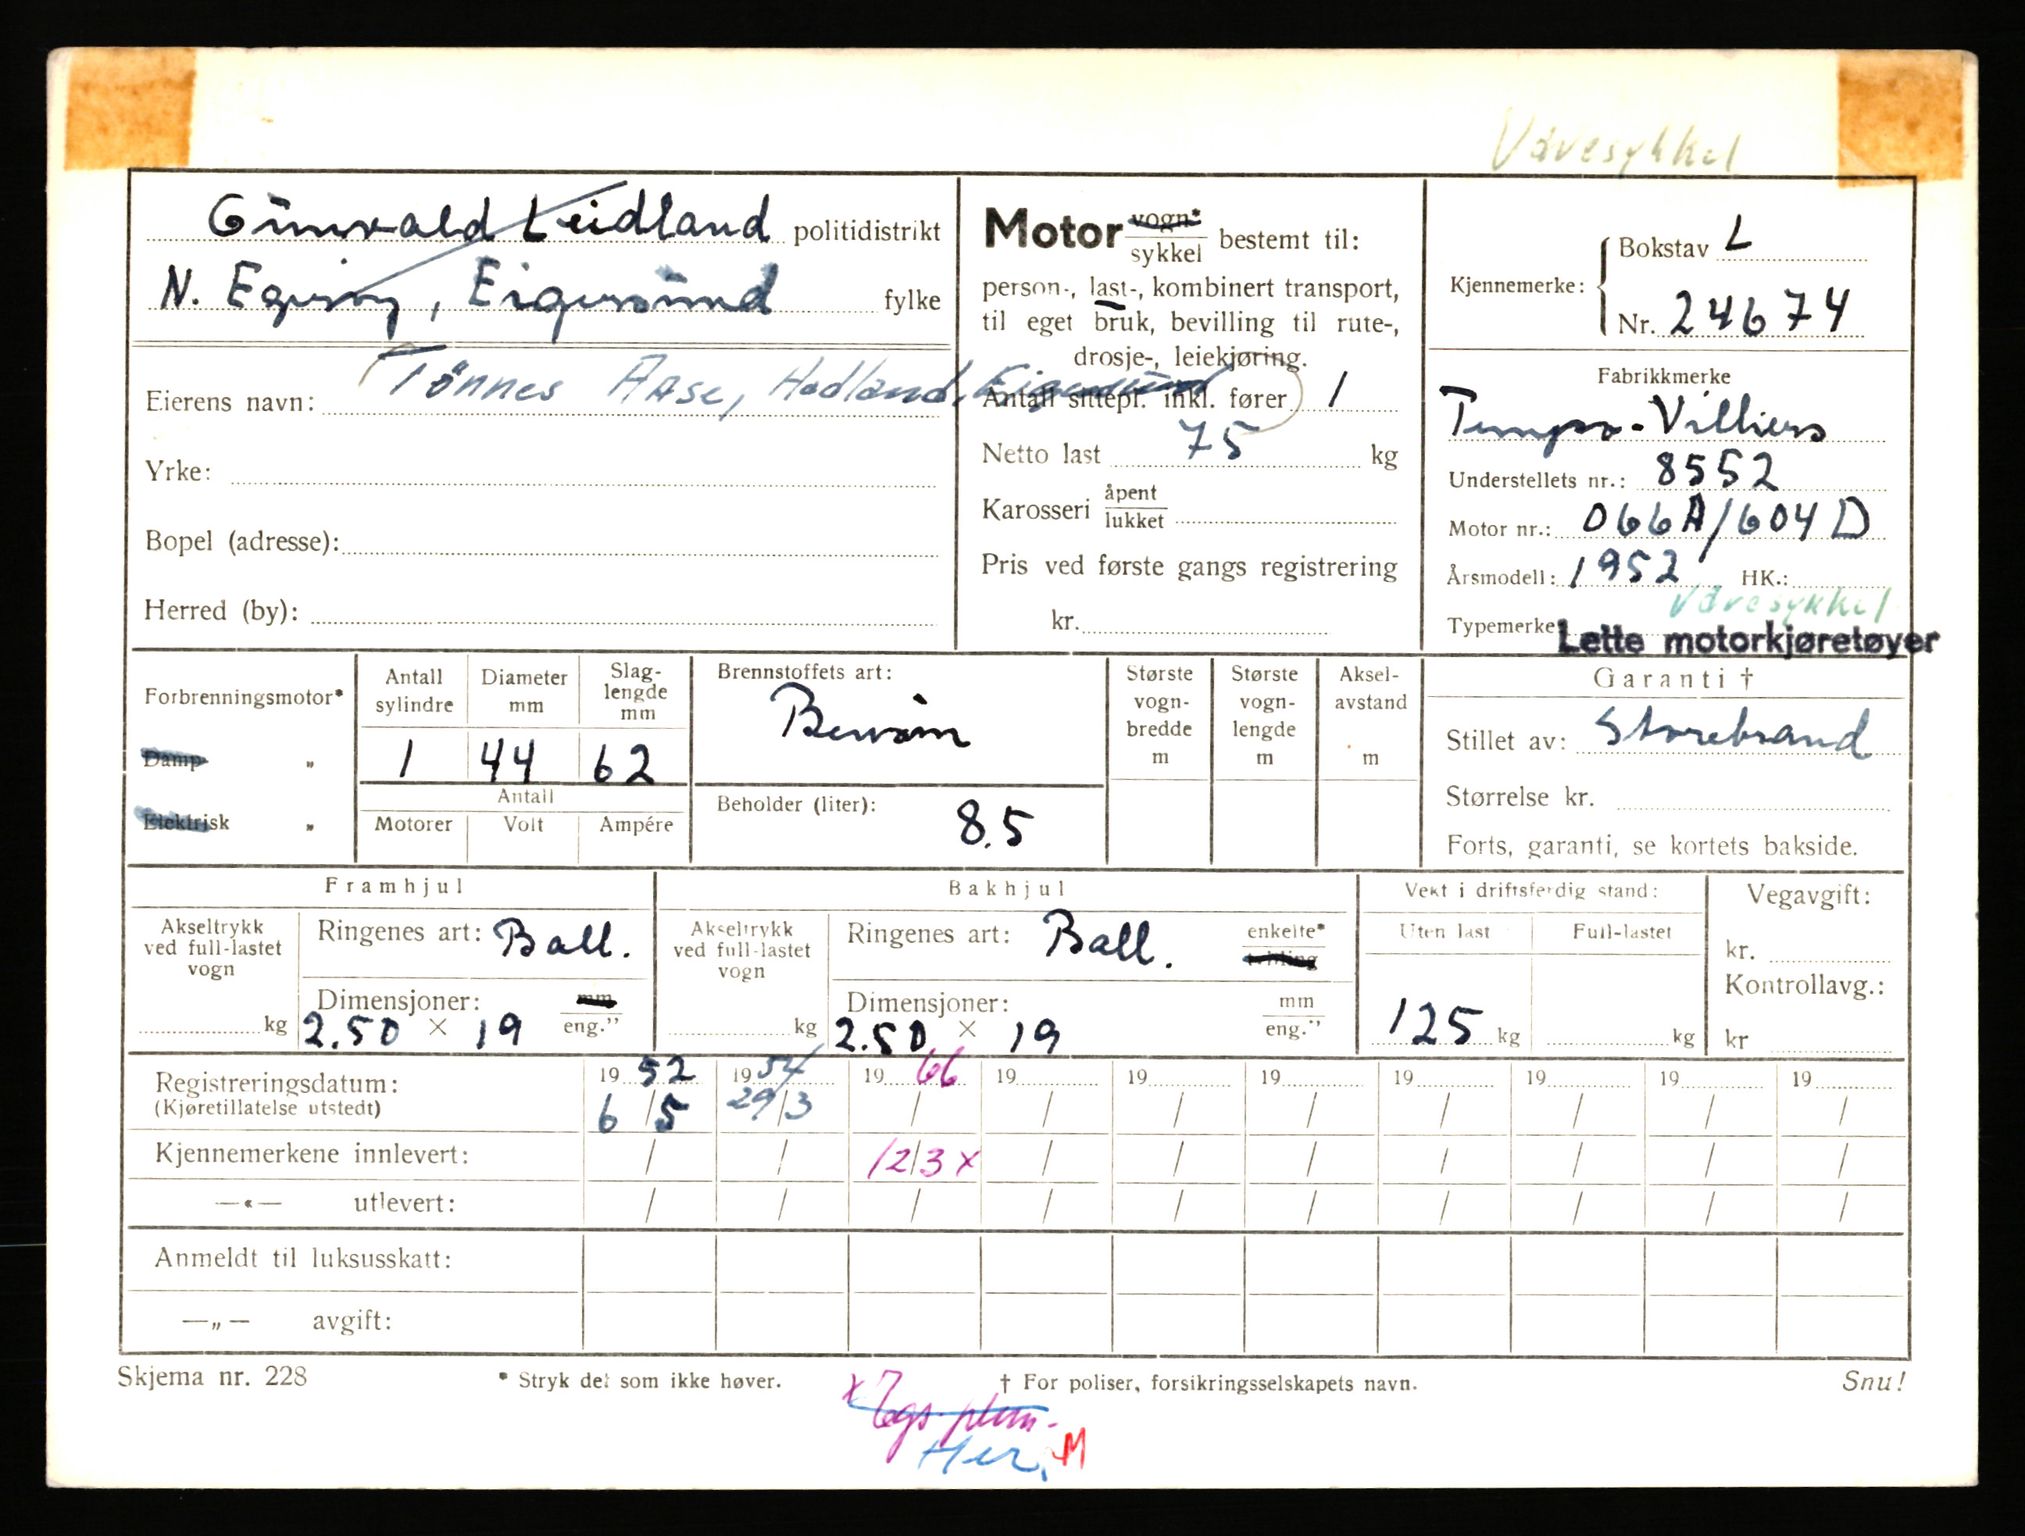 Varesykkel
Gunvald Leidland politidistrikt
N. Egerøy, Eigersund fylke
Eierens navn: Tønnes Aase, Hadland, Eigersund
Yrke:
Bopel (adresse):
Herred (by):
Motor vogn* / sykkel bestemt til:
person-, last-, kombinert transport,
til eget bruk, bevilling til rute-,
drosje-, leiekjøring.
Antall sittepl. inkl. fører 1
Netto last 75 kg
Karosseri åpent / lukket
Pris ved første gangs registrering
kr.
Kjennemerke: Bokstav L
Nr. 24674
Fabrikkmerke
Tempo-Villiers
Understellets nr.: 8552
Motor nr.: 066A/604D
Årsmodell: 1952 HK.:
Varesykkel
Typemerke Lette motorkjøretøyer
Forbrenningsmotor*
Damp "
Elektrisk "
Antall sylindre 1
Diameter mm 44
Slag-lengde mm 62
Antall
Motorer Volt Ampére
Brennstoffets art:
Bensin
Beholder (liter): 8.5
Største vogn-bredde m
Største vogn-lengde m
Aksel-avstand m
Garanti †
Stillet av: Storebrand
Størrelse kr.
Forts, garanti, se kortets bakside.
Framhjul
Akseltrykk ved full-lastet vogn kg
Ringenes art: Ball.
Dimensjoner: mm / eng."
2.50 × 19
Bakhjul
Akseltrykk ved full-lastet vogn kg
Ringenes art: Ball. enkelte* / tvilling
Dimensjoner: mm / eng."
2.50 × 19
Vekt i driftsferdig stand:
Uten last Full-lastet
125 kg kg
Vegavgift:
kr.
Kontrollavg.:
kr
Registreringsdatum: 1952 1954 1966 19 19 19 19 19 19 19
(Kjøretillatelse utstedt) 6/5 29/3 / / / / / / / /
Kjennemerkene innlevert: / / 12/3 x / / / / / / /
—«— utlevert: / / / / / / / / / /
Anmeldt til luksusskatt:
—„— avgift:
Skjema nr. 228 * Stryk det som ikke høver. † For poliser, forsikringsselskapets navn. Snu!
x
Her. M